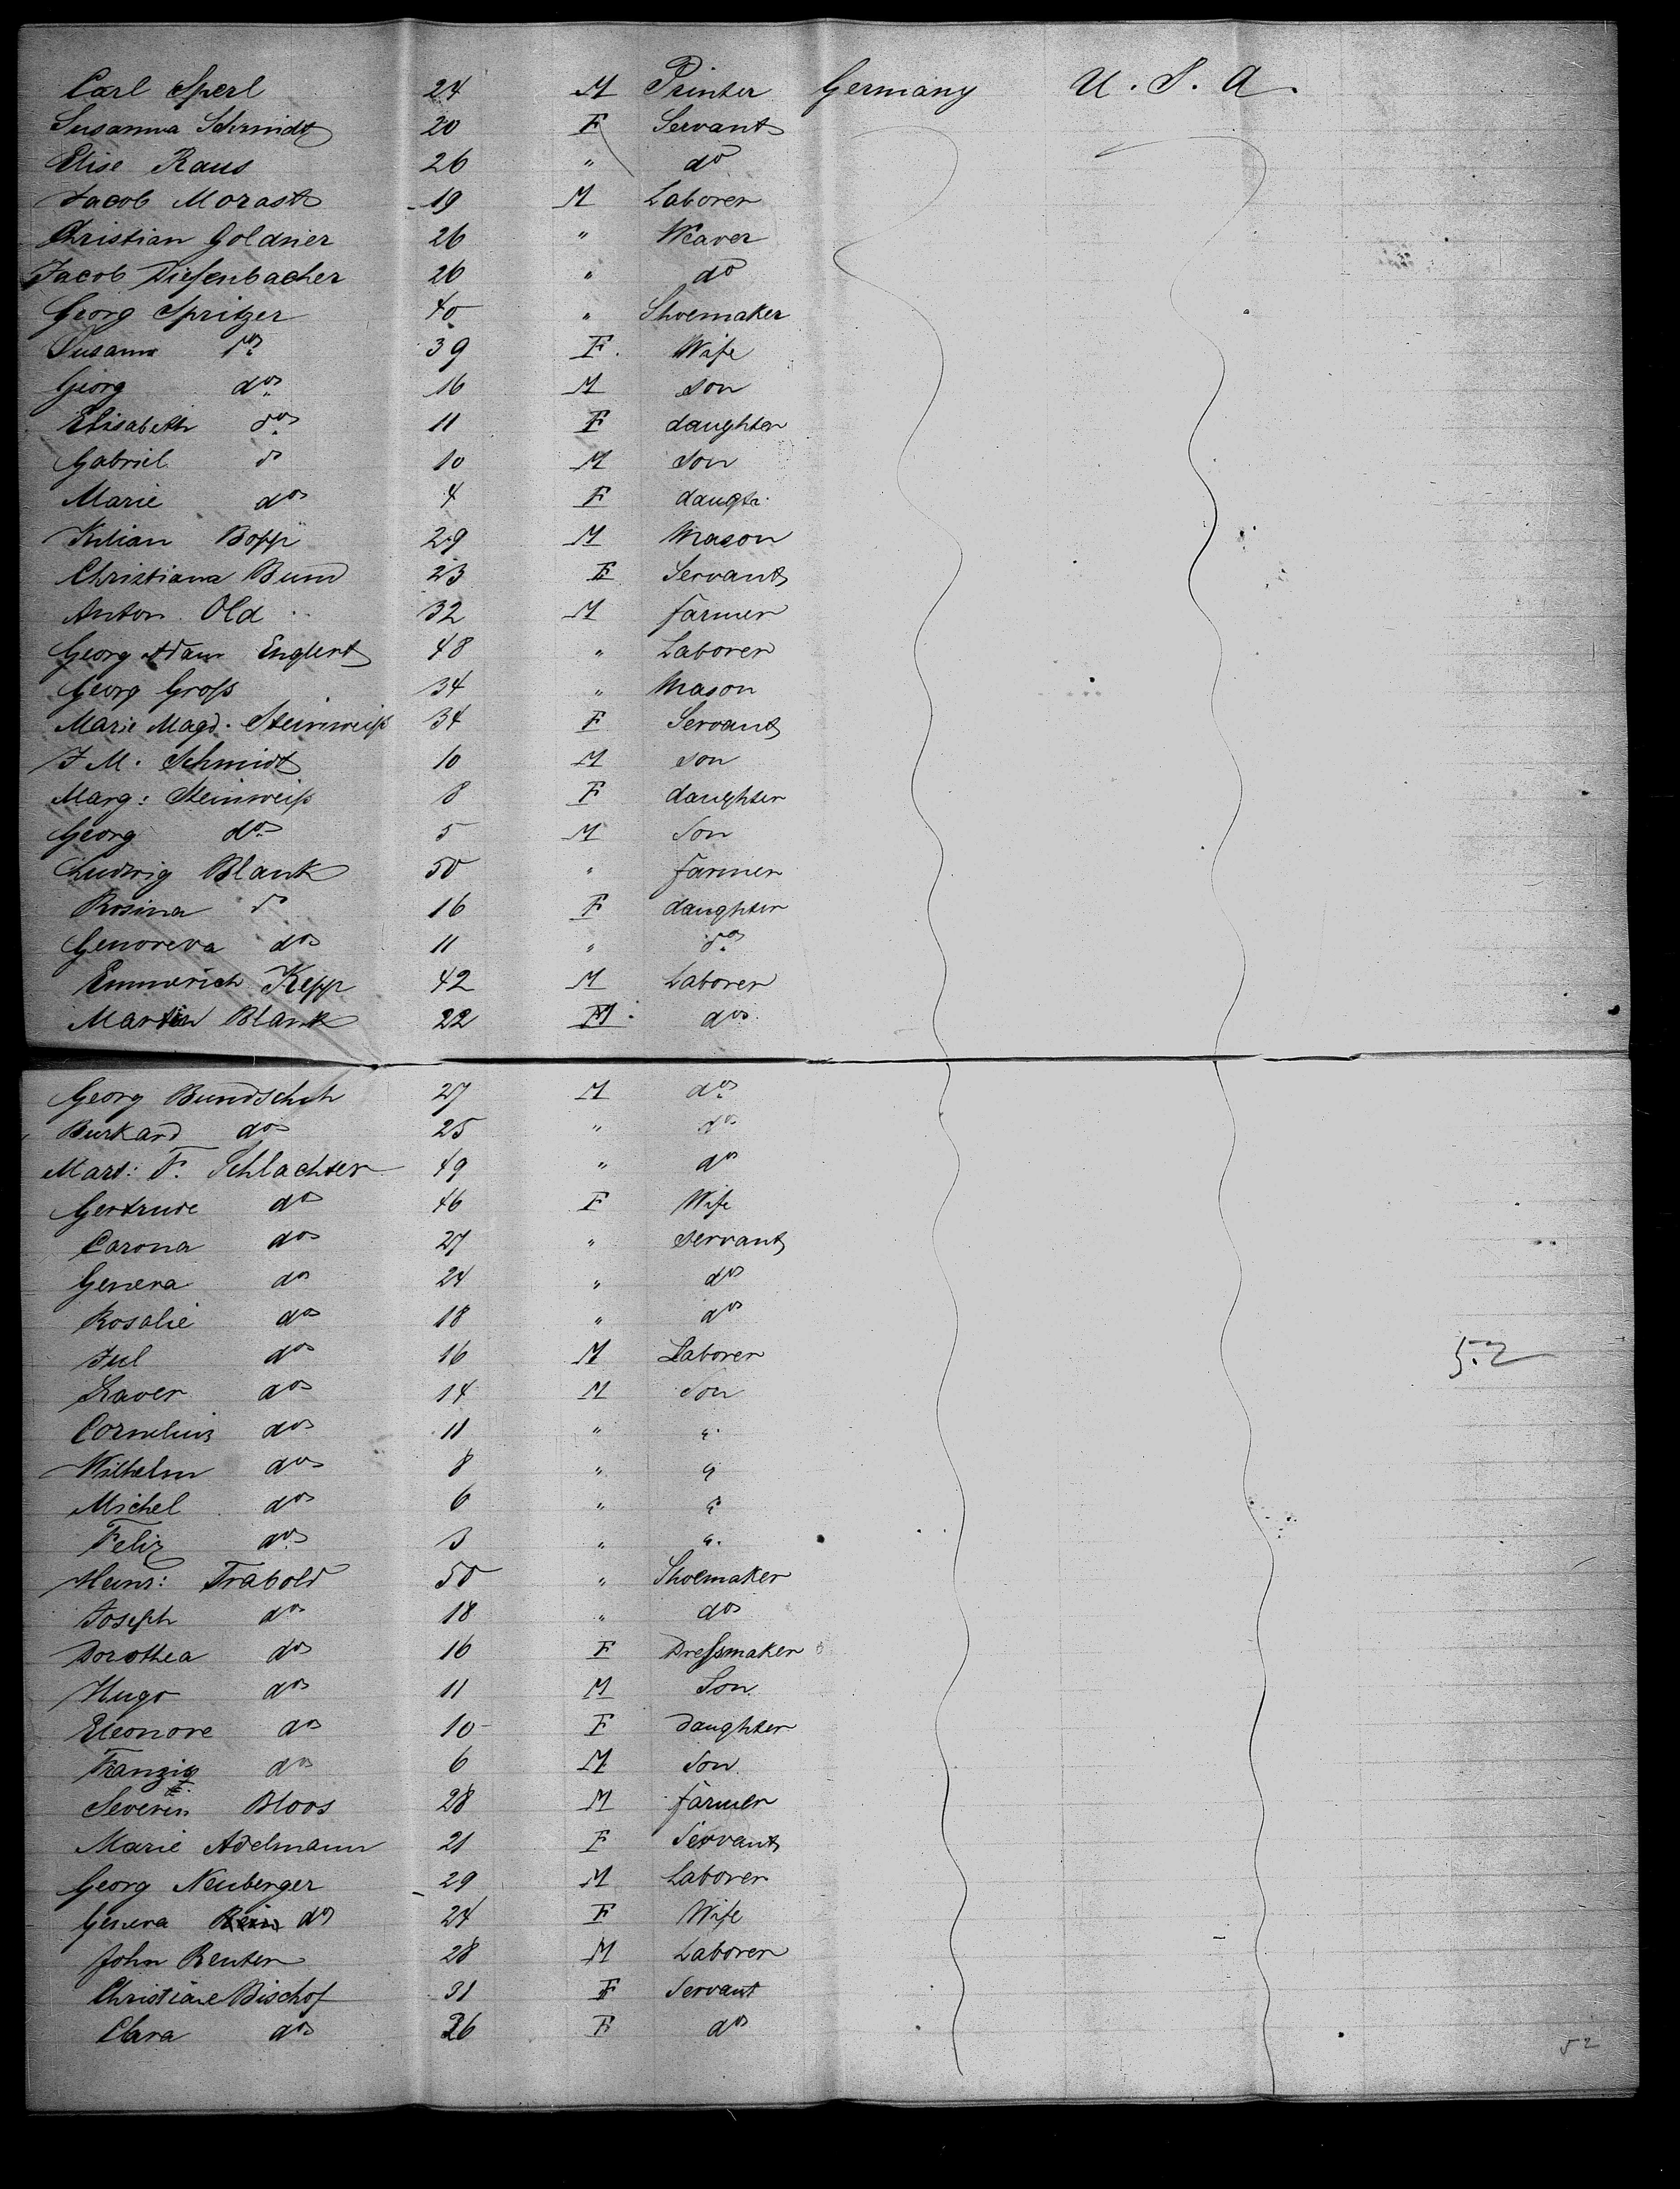 Carl Sperl 24 M Printer Germany U. S. A.
Susanna Schmidt 20 F Servant
Elise Raus 26 " do
Jacob Morast 19 M Laborer
Christian Goldner 26 " Weaver
Jacob Diefenbacher 26 " do
Georg Spritzer 40 " Shoemaker
Susanna do 39 F. Wife
Georg do 16 M son
Elisabeth do 11 F daughter
Gabriel do 10 M son
Marie do 4 F
Kilian Bopp 29 M Mason
Christiana Bund 23 F Servant
Anton Old 32 M farmer
Georg Adam Englert 48 " Laborer
Georg Groß 34 " Mason
Marie Magd. Steinweiß 34 F Servant
J M. Schmidt 10 M son
Marg: Steinweiß 8 F daughter
Georg do 5 M Son
Ludwig Blank 50 " farmer
Rosina do 16 F daughter
Genoveva do 11 " do
Emmerich Kepp 42 M Laborer
Martin Blank 22 M. do
Georg Bundschuh 27 M do
Burkard do 25 " do
Mart: F. Schlachter 49 " do
Gertrude do 46 F Wife
Carona do 27 " servant
Geneva do 24 " do
Rosalie do 18 " do
Jul do 16 M Laborer
Xaver do 14 M Son
Cornelius do 11 " "
Wilhelm do 8 " "
Michel do 6 " "
Felix do 3 " "
Heinr: Trabold 50 " Shoemaker
Joseph do 18 " do
Dorothea do 16 F Dreßmaker
Hugo do 11 M Son
Eleonore do 10 F Daughter
do 6 M Son
Severin Bloos 28 M farmer
Marie Adelmann 21 F Servant
Georg Neuberger 29 M Laborer
Geneva do 24 F Wife
John Reuter 28 M Laborer
Christiane Bischof 31 F Servant
Clara do 26 F do
52
52